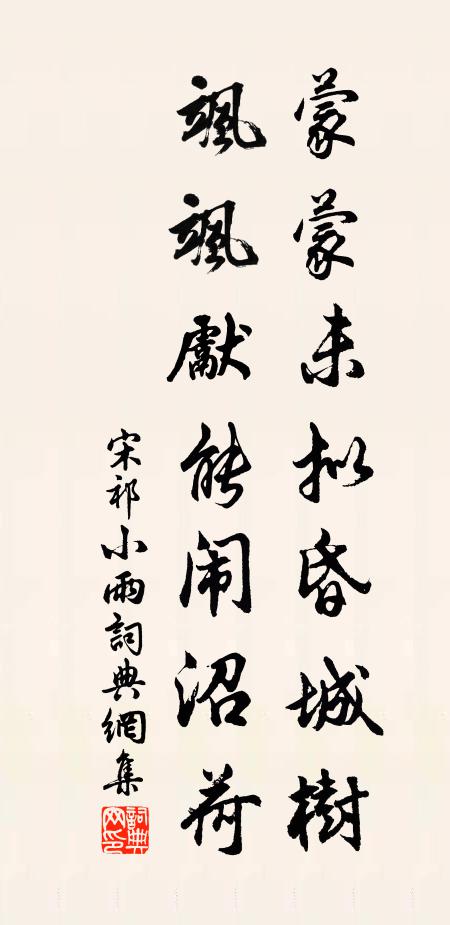 蒙蒙未拟昏城樹
颯颯獻能闹沼荷
宋祁小雨詞典網集
詞典网印